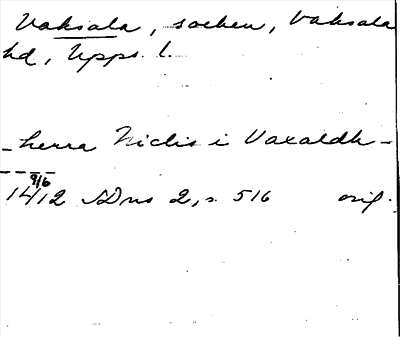 Vaksala, socken, Vaksala
hd, Upps. l.
- herra Niclis i Vaxaldh -
- - - -
1412 9/6 SDns 2, s. 516 orig.